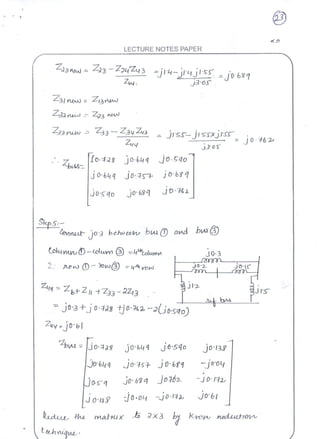 23
LECTURE NOTES PAPER
Z23new = Z23 - Z24Z43 / Z44 = j1.4 - j1.4 j1.55 / j3.05 = j0.689
Z31new = Z13new
Z32new = Z23 new
Z33new = Z33 - Z34 Z43 / Z44 = j1.55 - j1.55 x j1.55 / j3.05 = j0.762
∴ Zbus = [j0.728 j0.649 j0.590
j0.649 j0.757 j0.689
j0.590 j0.689 j0.762]
Step 5:-
Connect j0.3 between bus ① and bus ③
Column ① - colum ③ = 4th column
2. row ① - row ③ = 4th row
j0.3
j0.2 j0.15
j1.2 j1.5
ref bus
Z44 = Zb + Z11 + Z33 - 2Z13
= j0.3 + j0.728 + j0.762 - 2(j0.590)
Z44 = j0.61
Zbus = [j0.728 j0.649 j0.590 j0.138
j0.649 j0.757 j0.689 -j0.04
j0.59 j0.689 j0.762 -j0.172
j0.138 -j0.04 -j0.172 j0.61]
Reduce the matrix to 3x3 by Kron reduction
technique.